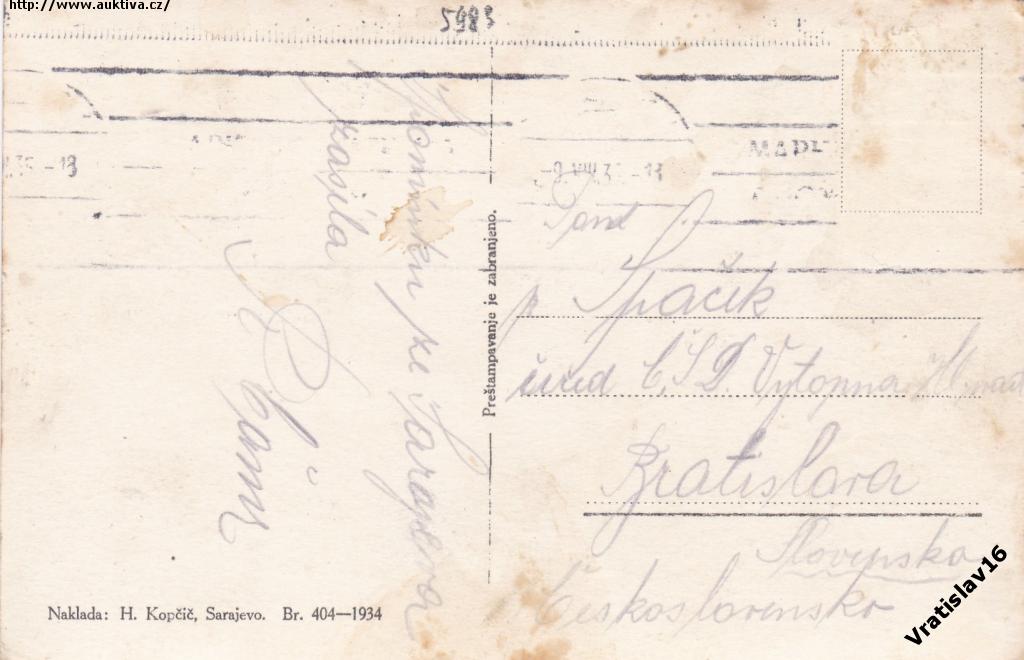 http://www.auktiva.cz/
5983
35 -13
-9 VIII 3 -13
Spomínku ze Sarajeva
zasíla
Preštampavanje je zabranjeno.
Pan
p Špaček
úřed Č.S.D. Výtopna
Bratislava
Slovensko
Československo
Naklada: H. Kopčič, Sarajevo. Br. 404—1934
Vratislav16